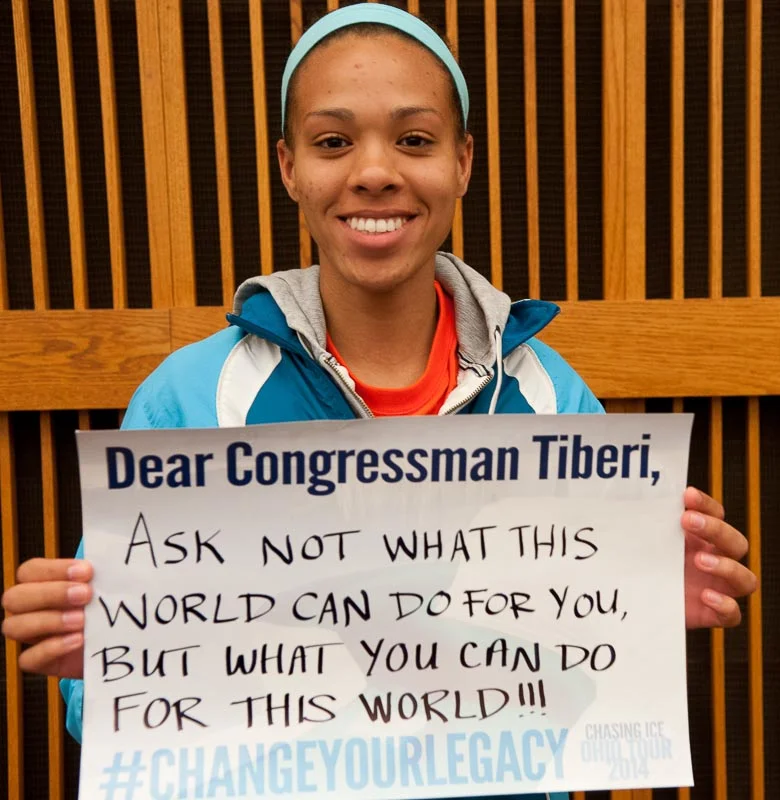 Dear Congressman Tiberi,
ASK NOT WHAT THIS
WORLD CAN DO FOR YOU,
BUT WHAT YOU CAN DO
FOR THIS WORLD!!!
#CHANGEYOURLEGACY
CHASING ICE
OHIO TOUR
2014